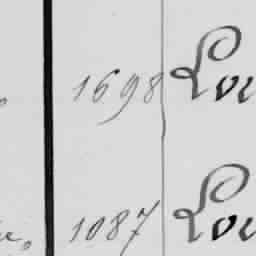 1698 Lou
1087 Lou